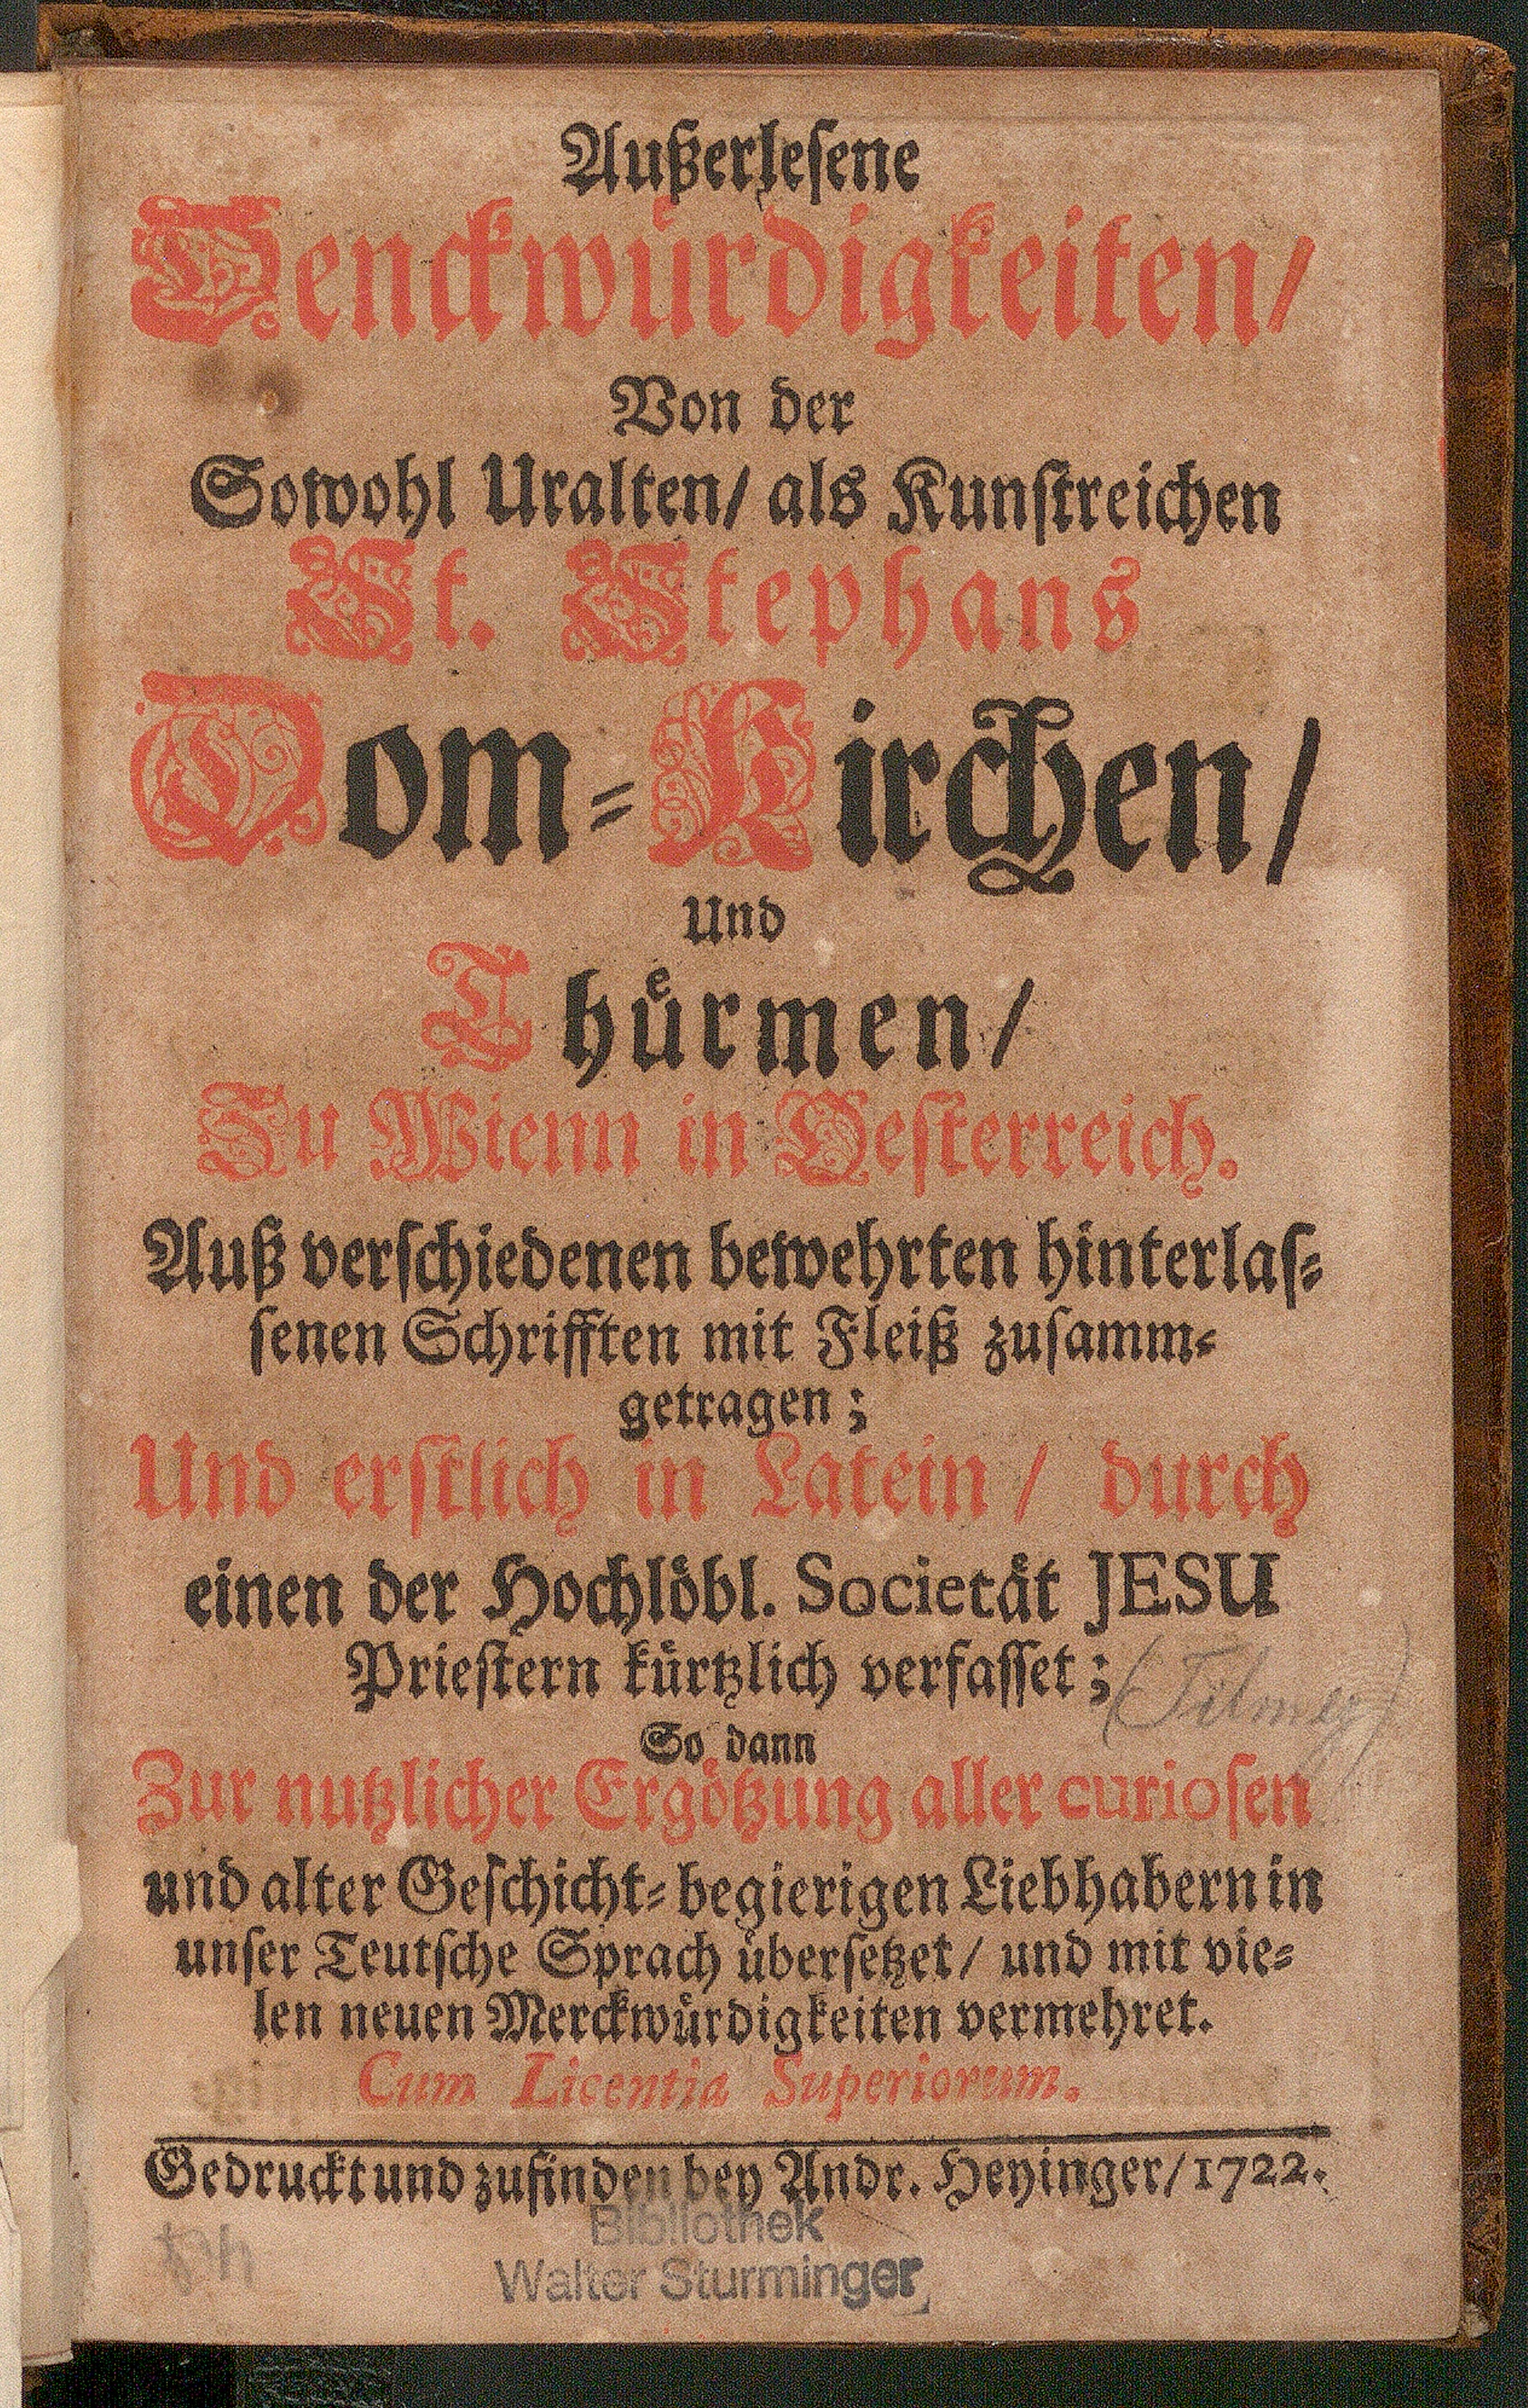 Außerlesene
Denckwürdigkeiten/
Von der
Sowohl Uralten/ als Kunstreichen
St. Stephans
Dom-Kirchen/
Und
Thürmen/
Zu Wienn in Oesterreich.
Auß verschiedenen bewehrten hinterlas-
senen Schrifften mit Fleiß zusamm-
getragen;
Und erstlich in Latein / durch
einen der Hochlöbl. Societät JESU
Priestern kürtzlich verfasset;
So dann
Zur nutzlicher Ergötzung aller curiosen
und alter Geschicht-begierigen Liebhabern in
unser Teutsche Sprach übersetzet/ und mit vie-
len neuen Merckwürdigkeiten vermehret.
Cum Licentia Superiorum.
Gedruckt und zufinden bey Andr. Heyinger/1722.
Bibliothek
Walter Sturminger